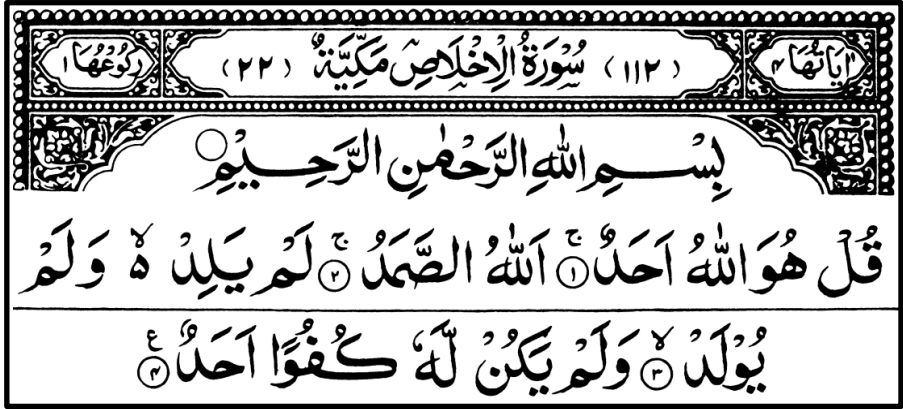 اٰيَاتُهَا ۴ (۱۱۲) سُوْرَةُ الْاِخْلَاصِ مَكِّيَّةٌ (۲۲) رُكُوْعُهَا ۱
بِسْمِ اللّٰهِ الرَّحْمٰنِ الرَّحِيْمِ ۝
قُلْ هُوَ اللّٰهُ اَحَدٌ ۚ‏﴿۱﴾ اَللّٰهُ الصَّمَدُ ۚ‏﴿۲﴾ لَمْ يَلِدْ ۙ۬ وَلَمْ
يُوْلَدْ ۙ‏﴿۳﴾ وَلَمْ يَكُنْ لَّهٗ كُفُوًا اَحَدٌ ‏﴿۴﴾ ع